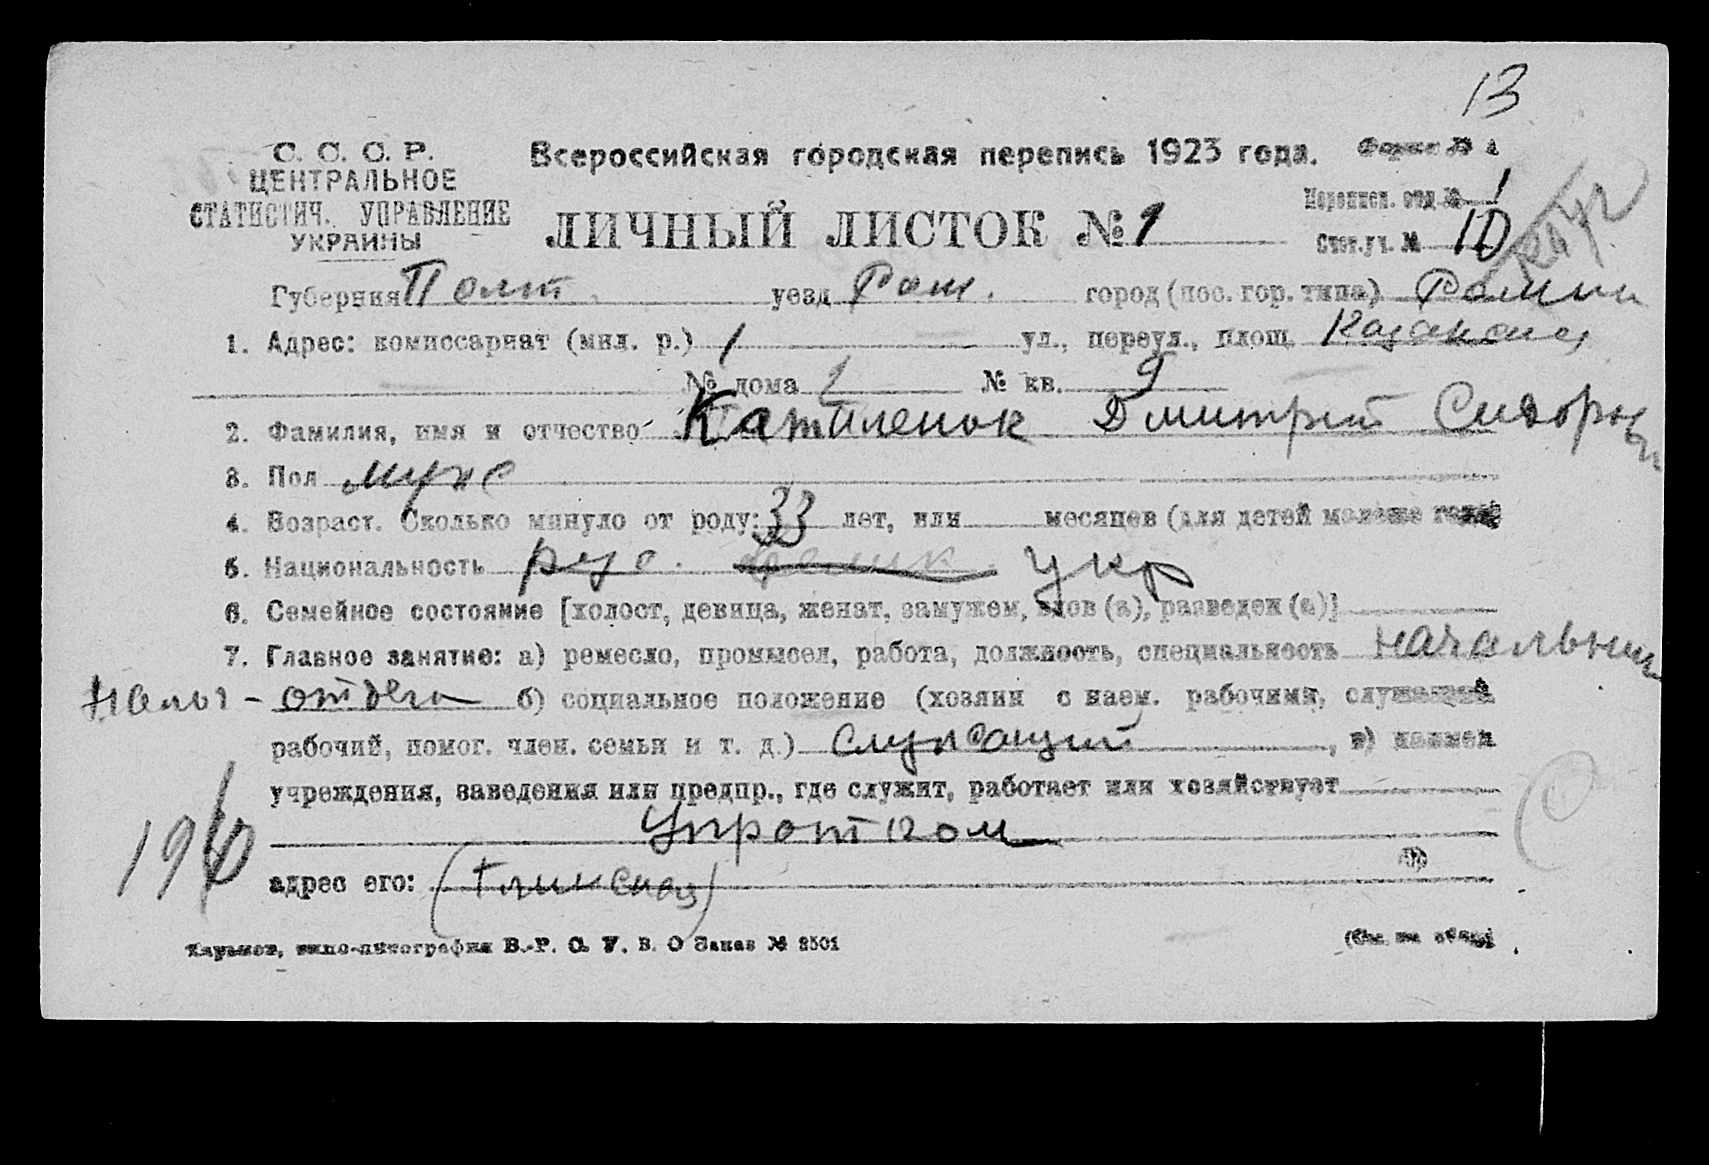 13
С. С. С. Р.
ЦЕНТРАЛЬНОЕ
СТАТИСТИЧ. УПРАВЛЕНИЕ
УКРАИНЫ
Всероссийская городская перепись 1923 года. Форма №
Переписн. отд. № 1
Счет. уч. № 10
ЛИЧНЫЙ ЛИСТОК № 1
Губерния Полт. уезд Ром. город (пос. гор. типа) Ромны
1. Адрес: комиссариат (мил. р.) 1 ул., переул., площ.
№ дома № кв. 9
2. Фамилия, имя и отчество Катиленок Дмитрий
3. Пол муж
4. Возраст. Сколько минуло от роду: 33 лет, или месяцев (для детей моложе года)
5. Национальность рус. укр
6. Семейное состояние [холост, девица, женат, замужем, вдов (а), разведен (а)]
7. Главное занятие: а) ремесло, промысел, работа, должность, специальность начальник
отдела б) социальное положение (хозяин с наем. рабочими, служащий
рабочий, помог. член. семьи и т. д.) служащий, в) наимен
учреждения, заведения или предпр., где служит, работает или хозяйствует
адрес его:
Харьков, типо-литография В.-Р. С. У. В. О Заказ № 2501
(См. на обор.)